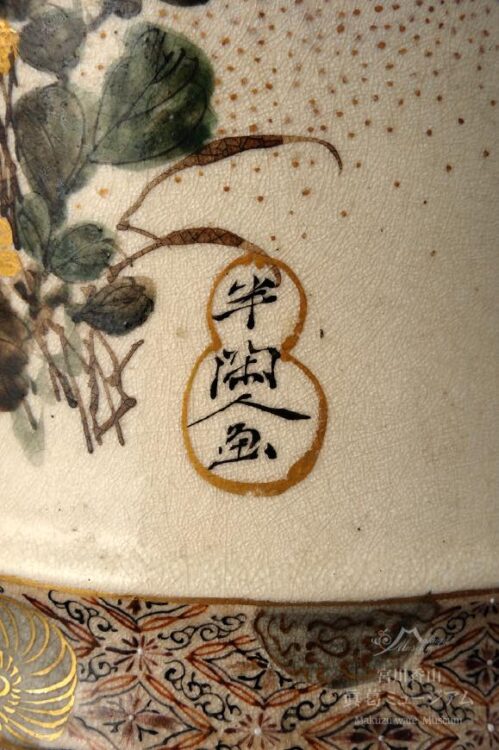 半
陶
人
画
宮川香山
眞葛ミュージアム
Makuzu ware Museum